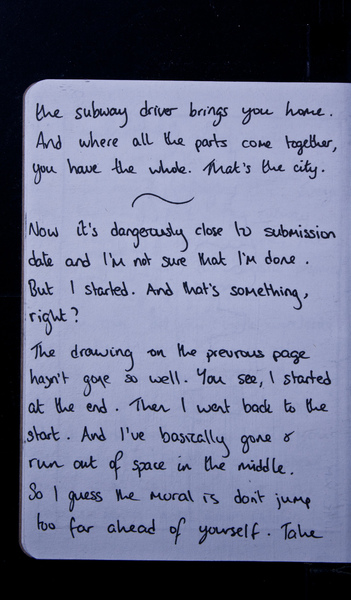 the subway driver brings you home.
And where all the parts come together,
you have the whole. That's the city.
Now it's dangerously close to submission
date and I'm not sure that I'm done.
But I started. And that's something,
right?
The drawing on the previous page
hasn't gone so well. You see, I started
at the end. Then I went back to the
start. And I've basically gone &
run out of space in the middle.
So I guess the moral is don't jump
too far ahead of yourself. Take